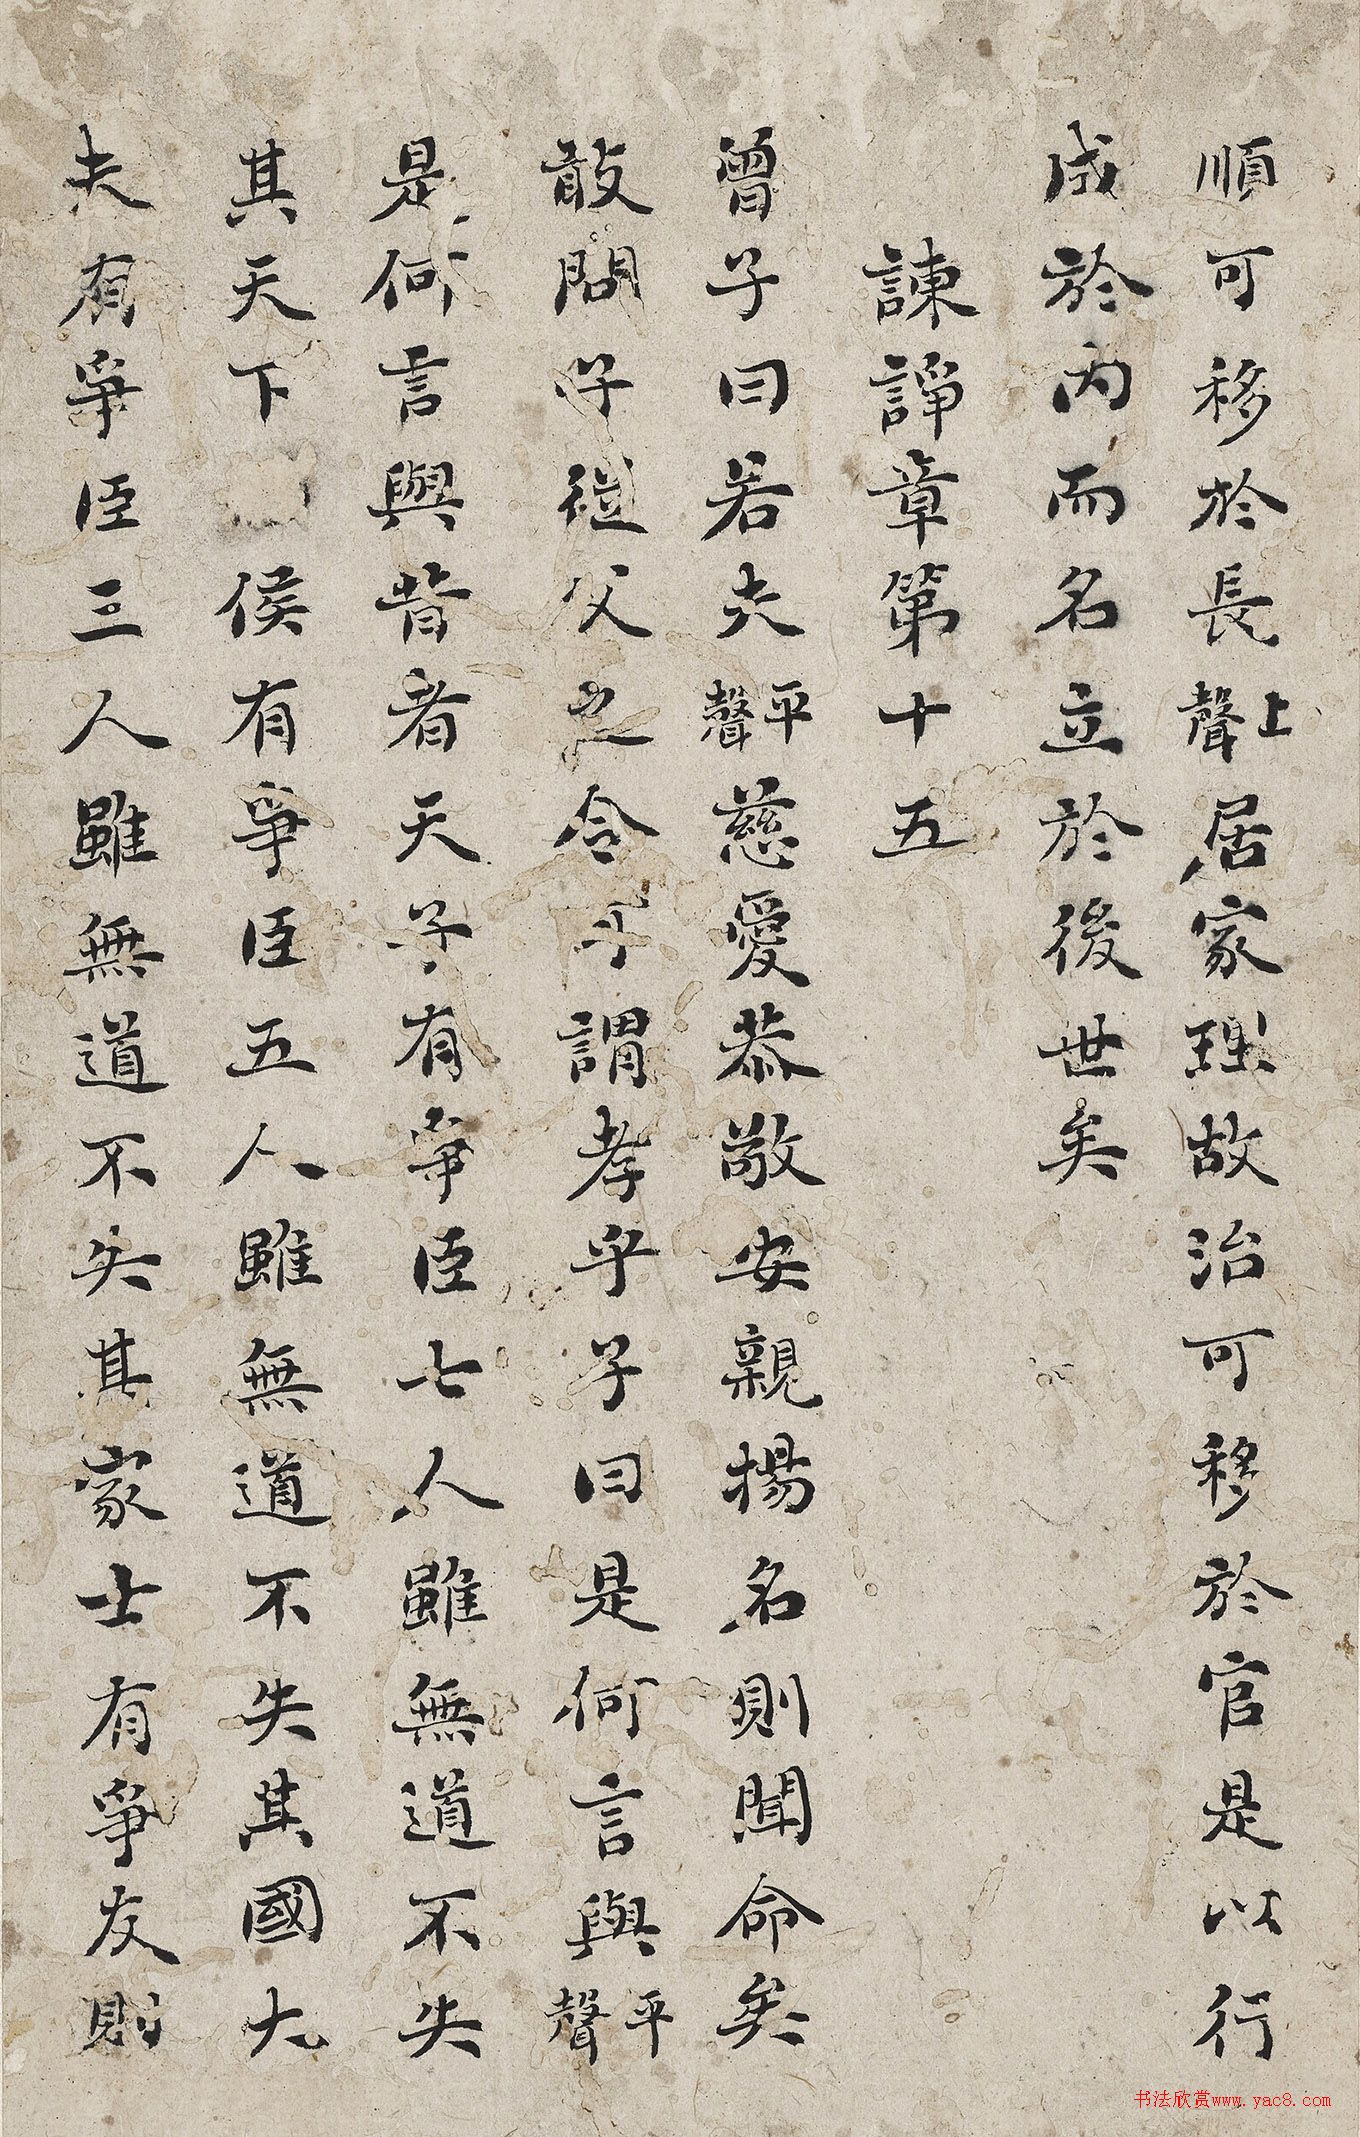 順可移於長上聲居家理故治可移於官是以行
成於內而名立於後世矣
諫諍章第十五
曾子曰若夫平聲慈愛恭敬安親揚名則聞命矣
敢問子從父之令可謂孝乎子曰是何言與平聲
是何言與昔者天子有爭臣七人雖無道不失
其天下侯有爭臣五人雖無道不失其國大
夫有爭臣三人雖無道不失其家士有爭友則
书法欣赏www.yac8.com